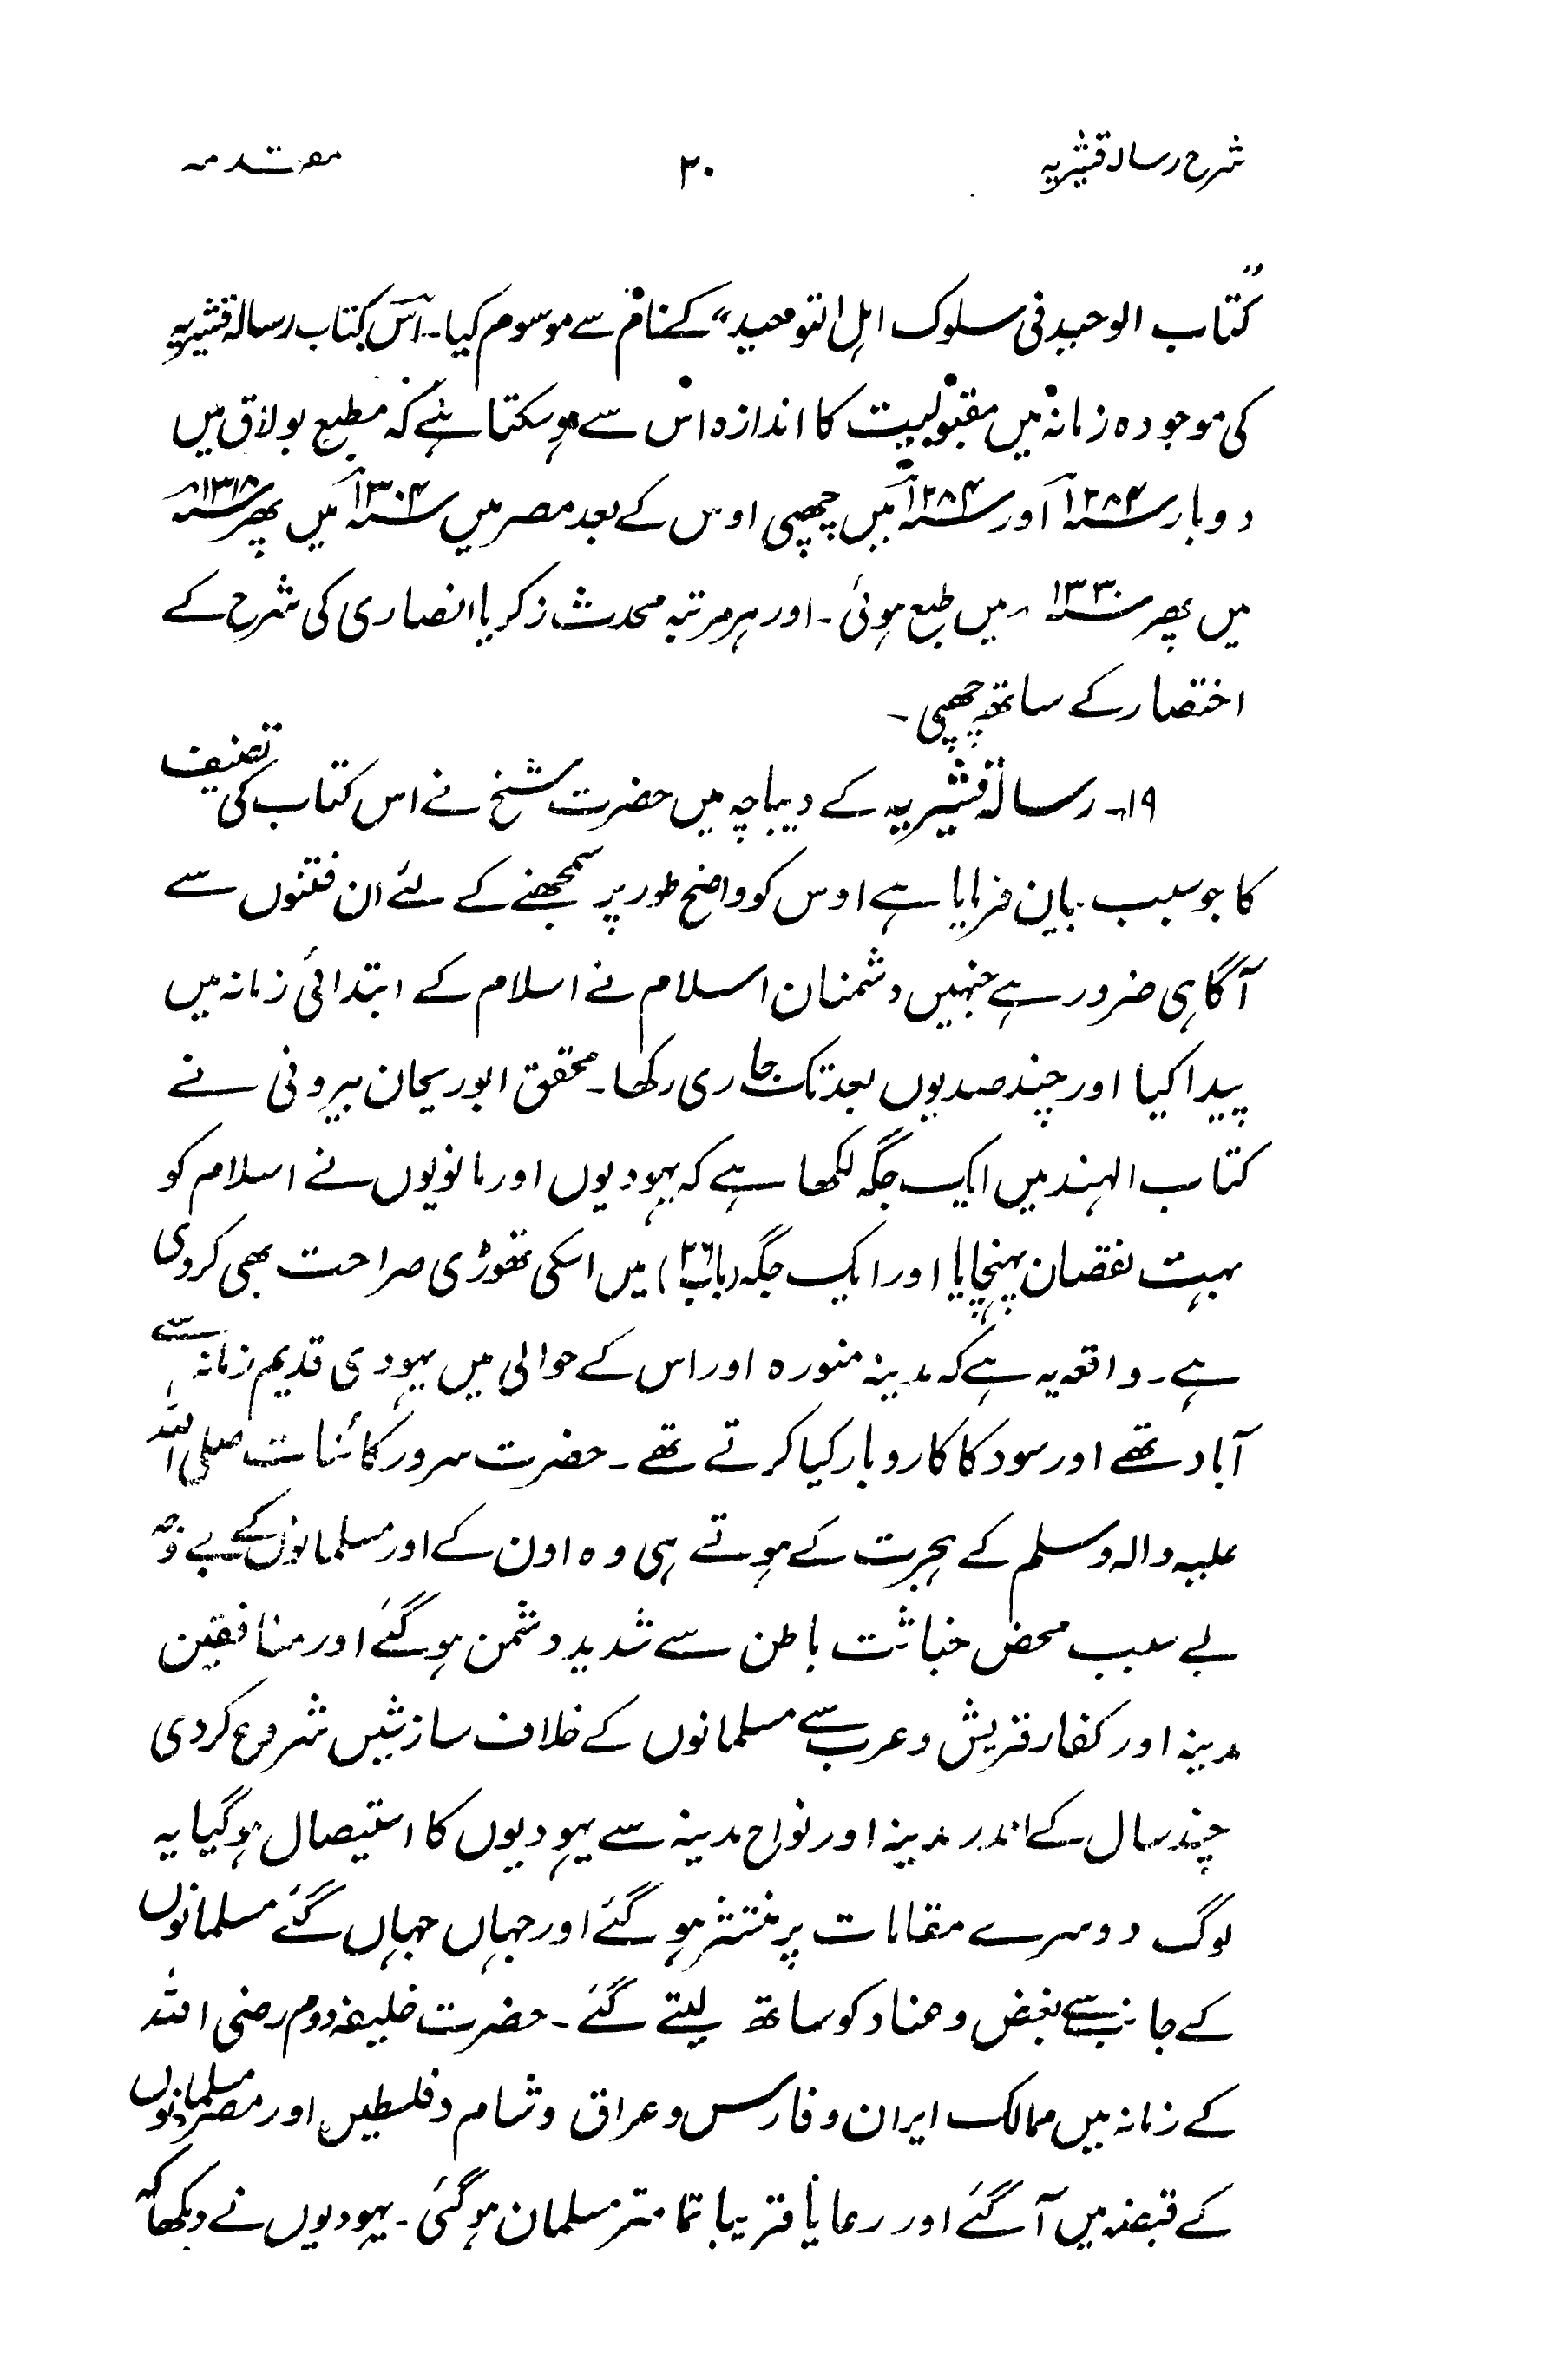 شرح رسالہ قشیریہ ۲۰ مقدمہ
"کتاب الوحید فی سلوک اہل التوحید" کے نام سے موسوم کیا۔ اس کتاب رسالہ قشیریہ
کی موجودہ زمانہ میں مقبولیت کا اندازہ اس سے ہو سکتا ہے کہ مطبع بولاق میں
دوبار ۱۲۸۴ اور ۱۲۸۴ میں چھپی اوس کے بعد مصر میں ۱۳۰۴ میں پھر ۱۳۱۸
میں پھر ۱۳۳۰ میں طبع ہوئی۔ اور ہر مرتبہ محدث زکریا انصاری کی شرح کے
اختصار کے ساتھ چھپی۔
۱۹۔ رسالہ قشیریہ کے دیباچہ میں حضرت شیخ نے اس کتاب کی تصنیف
کا جو سبب بیان فرمایا ہے اوس کو واضح طور پر سمجھنے کے لئے ان فتنوں سے
آگاہی ضرور ہے جنہیں دشمنان اسلام نے اسلام کے ابتدائی زمانہ میں
پیدا کیا اور چند صدیوں بعد تک جاری رکھا۔ محقق ابو ریحان بیرونی نے
کتاب الہند میں ایک جگہ لکھا ہے کہ یہودیوں اور مانویوں نے اسلام کو
بہت نقصان پہنچایا اور ایک جگہ (باب ۲۶) میں اسکی تھوڑی صراحت بھی کردی
ہے۔ واقعہ یہ ہے کہ مدینہ منورہ اور اس کے حوالی میں یہودی قدیم زمانہ سے
آباد تھے اور سود کا کاروبار کیا کرتے تھے۔ حضرت سرور کائنات صلی اللہ
علیہ والہ وسلم کے ہجرت کے ہوتے ہی وہ اون کے اور مسلمانوں کے بے وجہ
بے سبب محض خباثت باطن سے شدید دشمن ہو گئے اور منافقین
مدینہ اور کفار قریش و عرب سے مسلمانوں کے خلاف سازشیں شروع کردی
چند سال کے اندر مدینہ اور نواح مدینہ سے یہودیوں کا استیصال ہو گیا یہ
لوگ دوسرے مقامات پر منتشر ہو گئے اور جہاں جہاں گئے مسلمانوں
کے جانب سے بغض و عناد کو ساتھ لیتے گئے۔ حضرت خلیفہ دوم رضی اللہ
کے زمانہ میں ممالک ایران و فارس و عراق و شام و فلسطین اور مصر مسلمانوں
کے قبضہ میں آگئے اور رعایا قریباً تمامتر مسلمان ہو گئی۔ یہودیوں نے دیکھا کہ